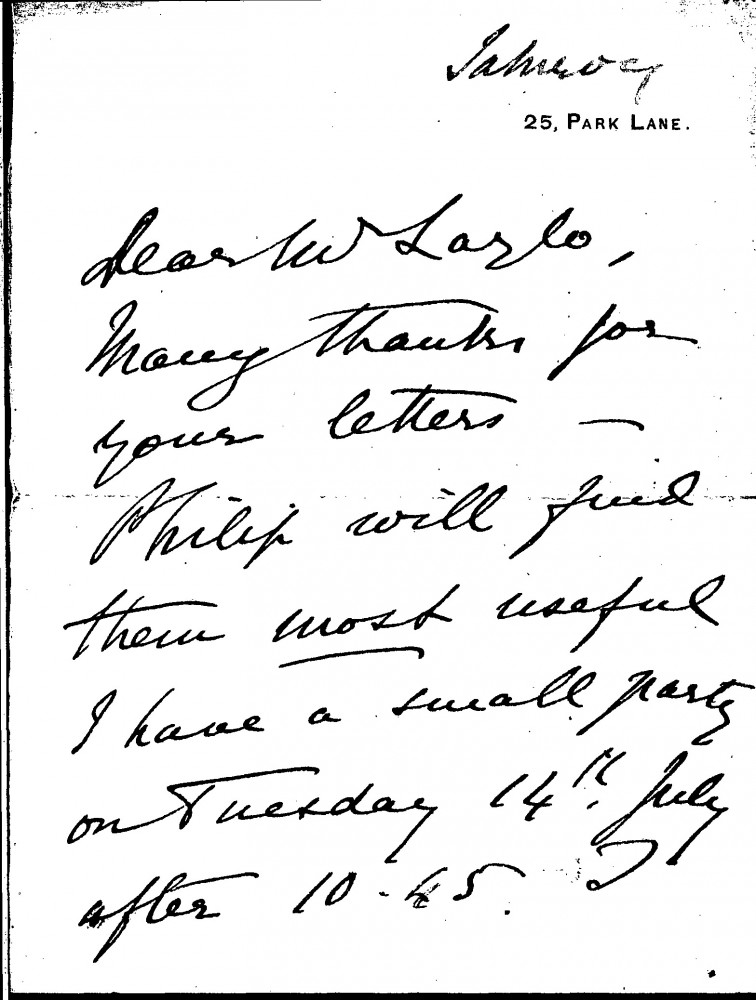 25, PARK LANE.
Dear Mr Lazlo,
Many thanks for
your letters —
Philip will find
them most useful
I have a small party
on Tuesday 14th. July
after 10.45. I